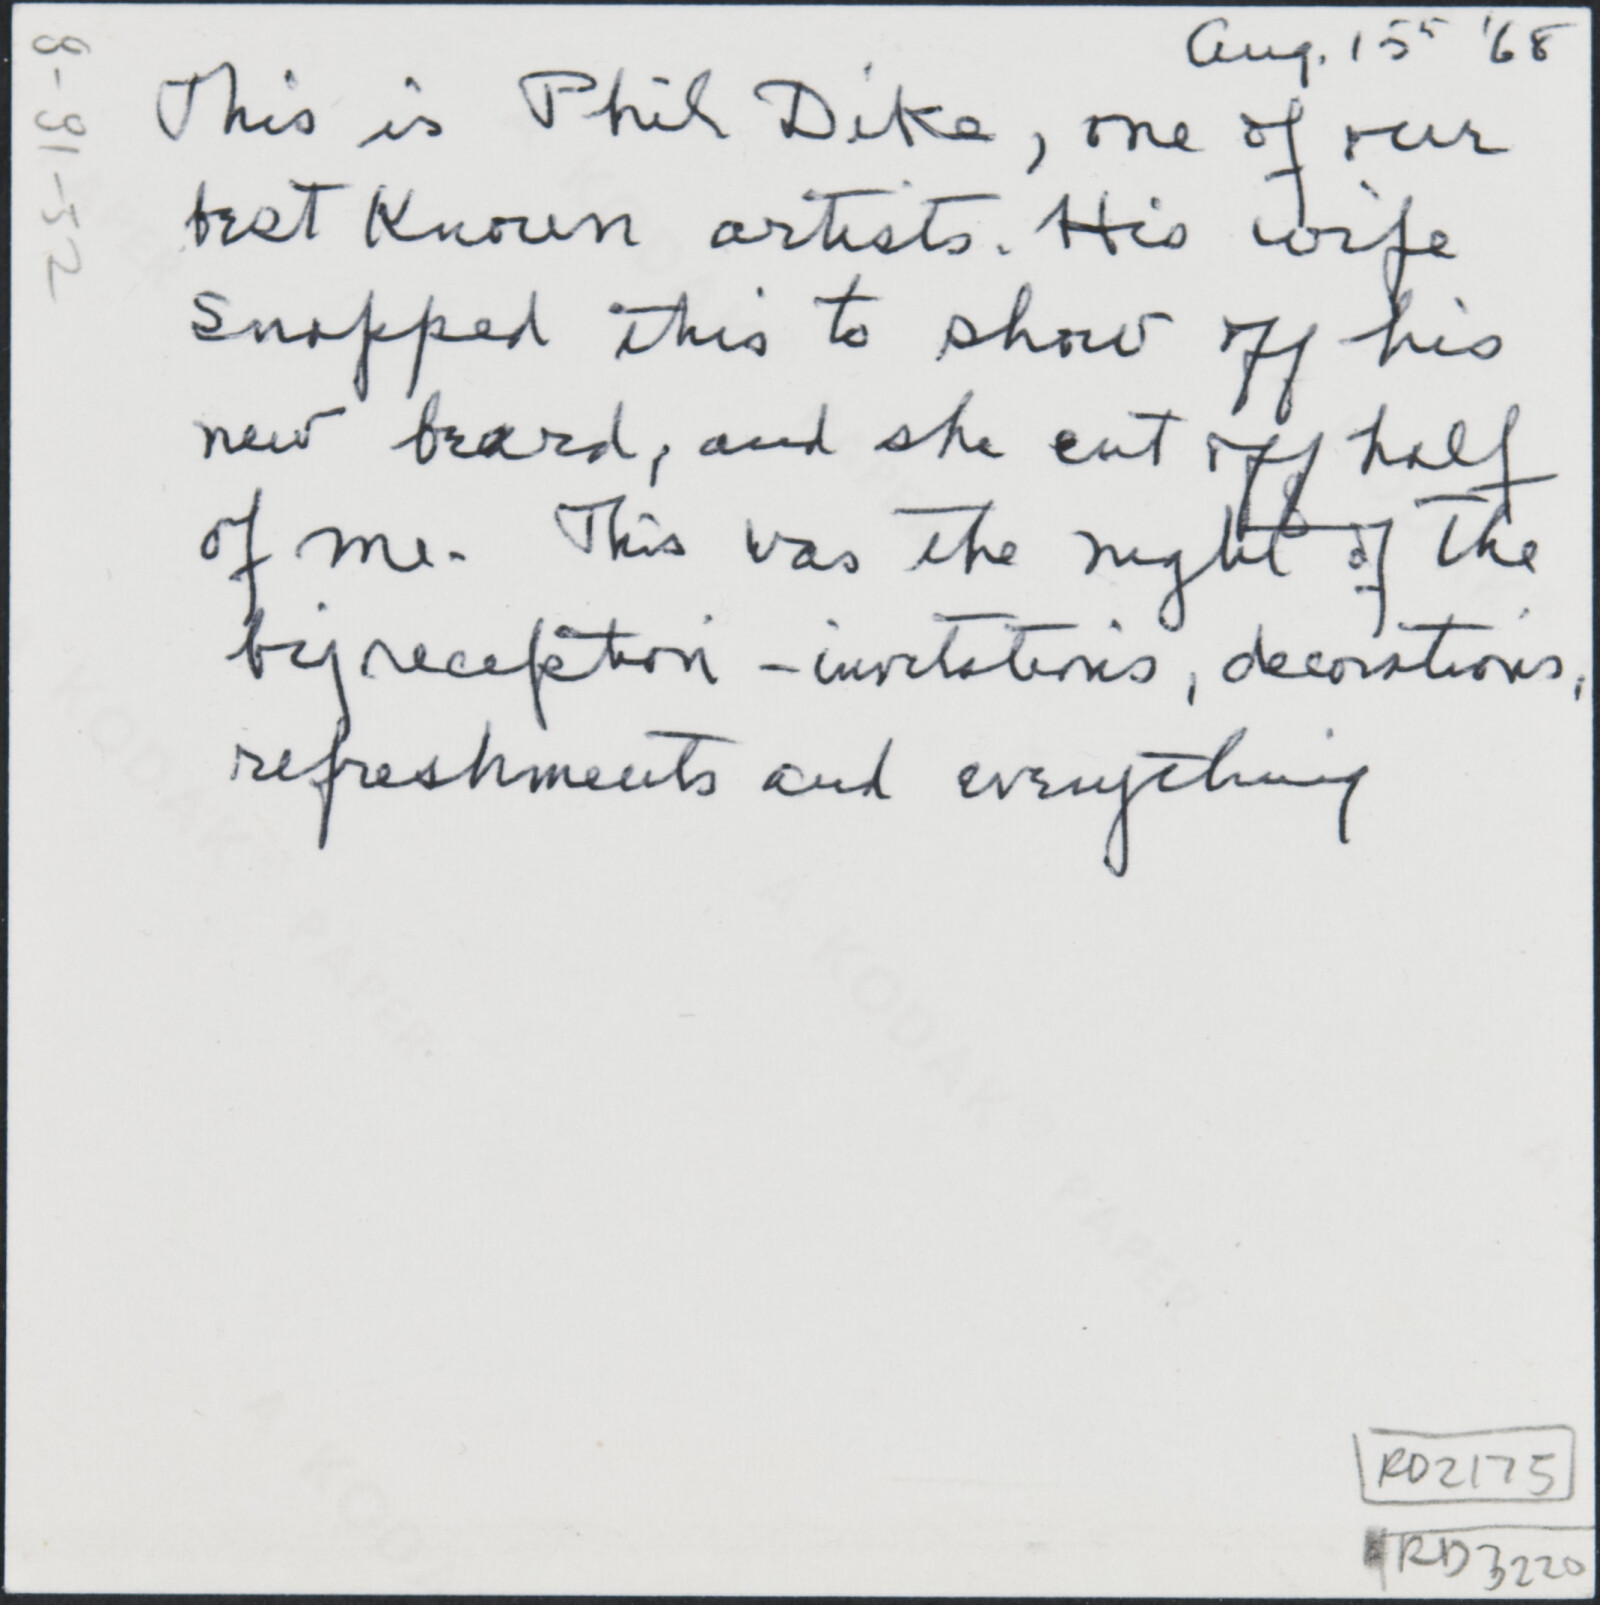 Aug. 15th '68
This is Phil Dike, one of our
best known artists. His wife
snapped this to show off his
new beard, and she cut off half
of me. This was the night of the
big reception - invitations, decorations,
refreshments and everything
RD2175
RD3220
A KODAK PAPER